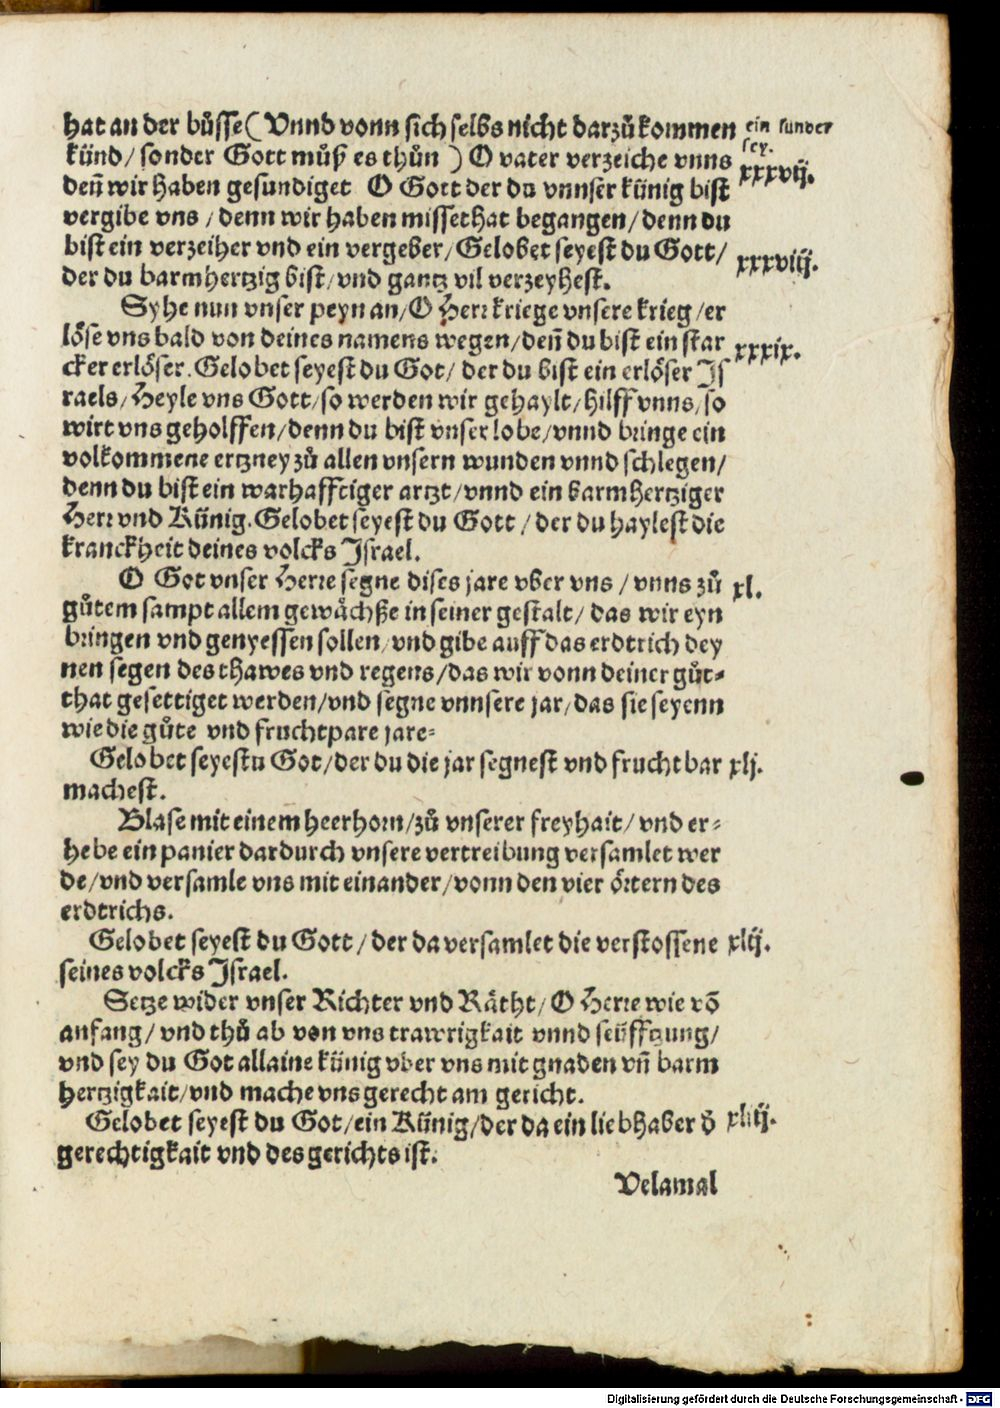 hat an der bůsse( Vnnd vonn sich selbs nicht darzů kommen
ein sunder
sey.
künd/ sonder Gott můß es thůn ) O vater verzeiche vnns
xxxvij.
deñ wir haben gesundiget O Gott der du vnnser künig bist
vergibe vns / denn wir haben missethat begangen/ denn du
bist ein verzeiher vnd ein vergeber/ Gelobet seyest du Gott/
xxxviij.
der du barmhertzig bist/ vnd gantz vil verzeyhest.
Syhe nun vnser peyn an/ O Herr kriege vnsere krieg/ er
löse vns bald von deines namens wegen/ deñ du bist ein star
xxxix.
cker erlöser. Gelobet seyest du Got/ der du bist ein erlöser Is
raels/ Heyle vns Gott/ so werden wir gehaylt/ hilff vnns/ so
wirt vns geholffen/ denn du bist vnser lobe/ vnnd bringe ein
volkommene ertzney zů allen vnsern wunden vnnd schlegen/
denn du bist ein warhafftiger artzt/ vnnd ein barmhertziger
Herr vnd Künig. Gelobet seyest du Gott / der du haylest die
kranckheit deines volcks Israel.
O Got vnser Herre segne dises jare vber vns / vnns zů
xl.
gůtem sampt allem gewächße in seiner gestalt/ das wir eyn
bringen vnd genyessen sollen/ vnd gibe auff das erdtrich dey
nen segen des thawes vnd regens/ das wir vonn deiner gůt-
that gesettiget werden/ vnd segne vnnsere jar/ das sie seyenn
wie die gůte vnd fruchtpare jare-
Gelobet seyestu Got/ der du die jar segnest vnd fruchtbar
xlj.
machest.
Blase mit einem heerhorn/ zů vnserer freyhait/ vnd er-
hebe ein panier dardurch vnsere vertreibung versamlet wer
de/ vnd versamle vns mit einander/ vonn den vier örtern des
erdtrichs.
Gelobet seyest du Gott / der da versamlet die verstossene
xlij.
seines volcks Israel.
Setze wider vnser Richter vnd Rätht/ O Herre wie võ
anfang/ vnd thů ab von vns trawrigkait vnnd seüfftzung/
vnd sey du Got allaine künig vber vns mit gnaden vñ barm
hertzigkait/ vnd mache vns gerecht am gericht.
Gelobet seyest du Got/ ein Künig/ der da ein liebhaber d̄
xliij.
gerechtigkait vnd des gerichts ist.
Velamal
Digitalisierung gefördert durch die Deutsche Forschungsgemeinschaft - DFG